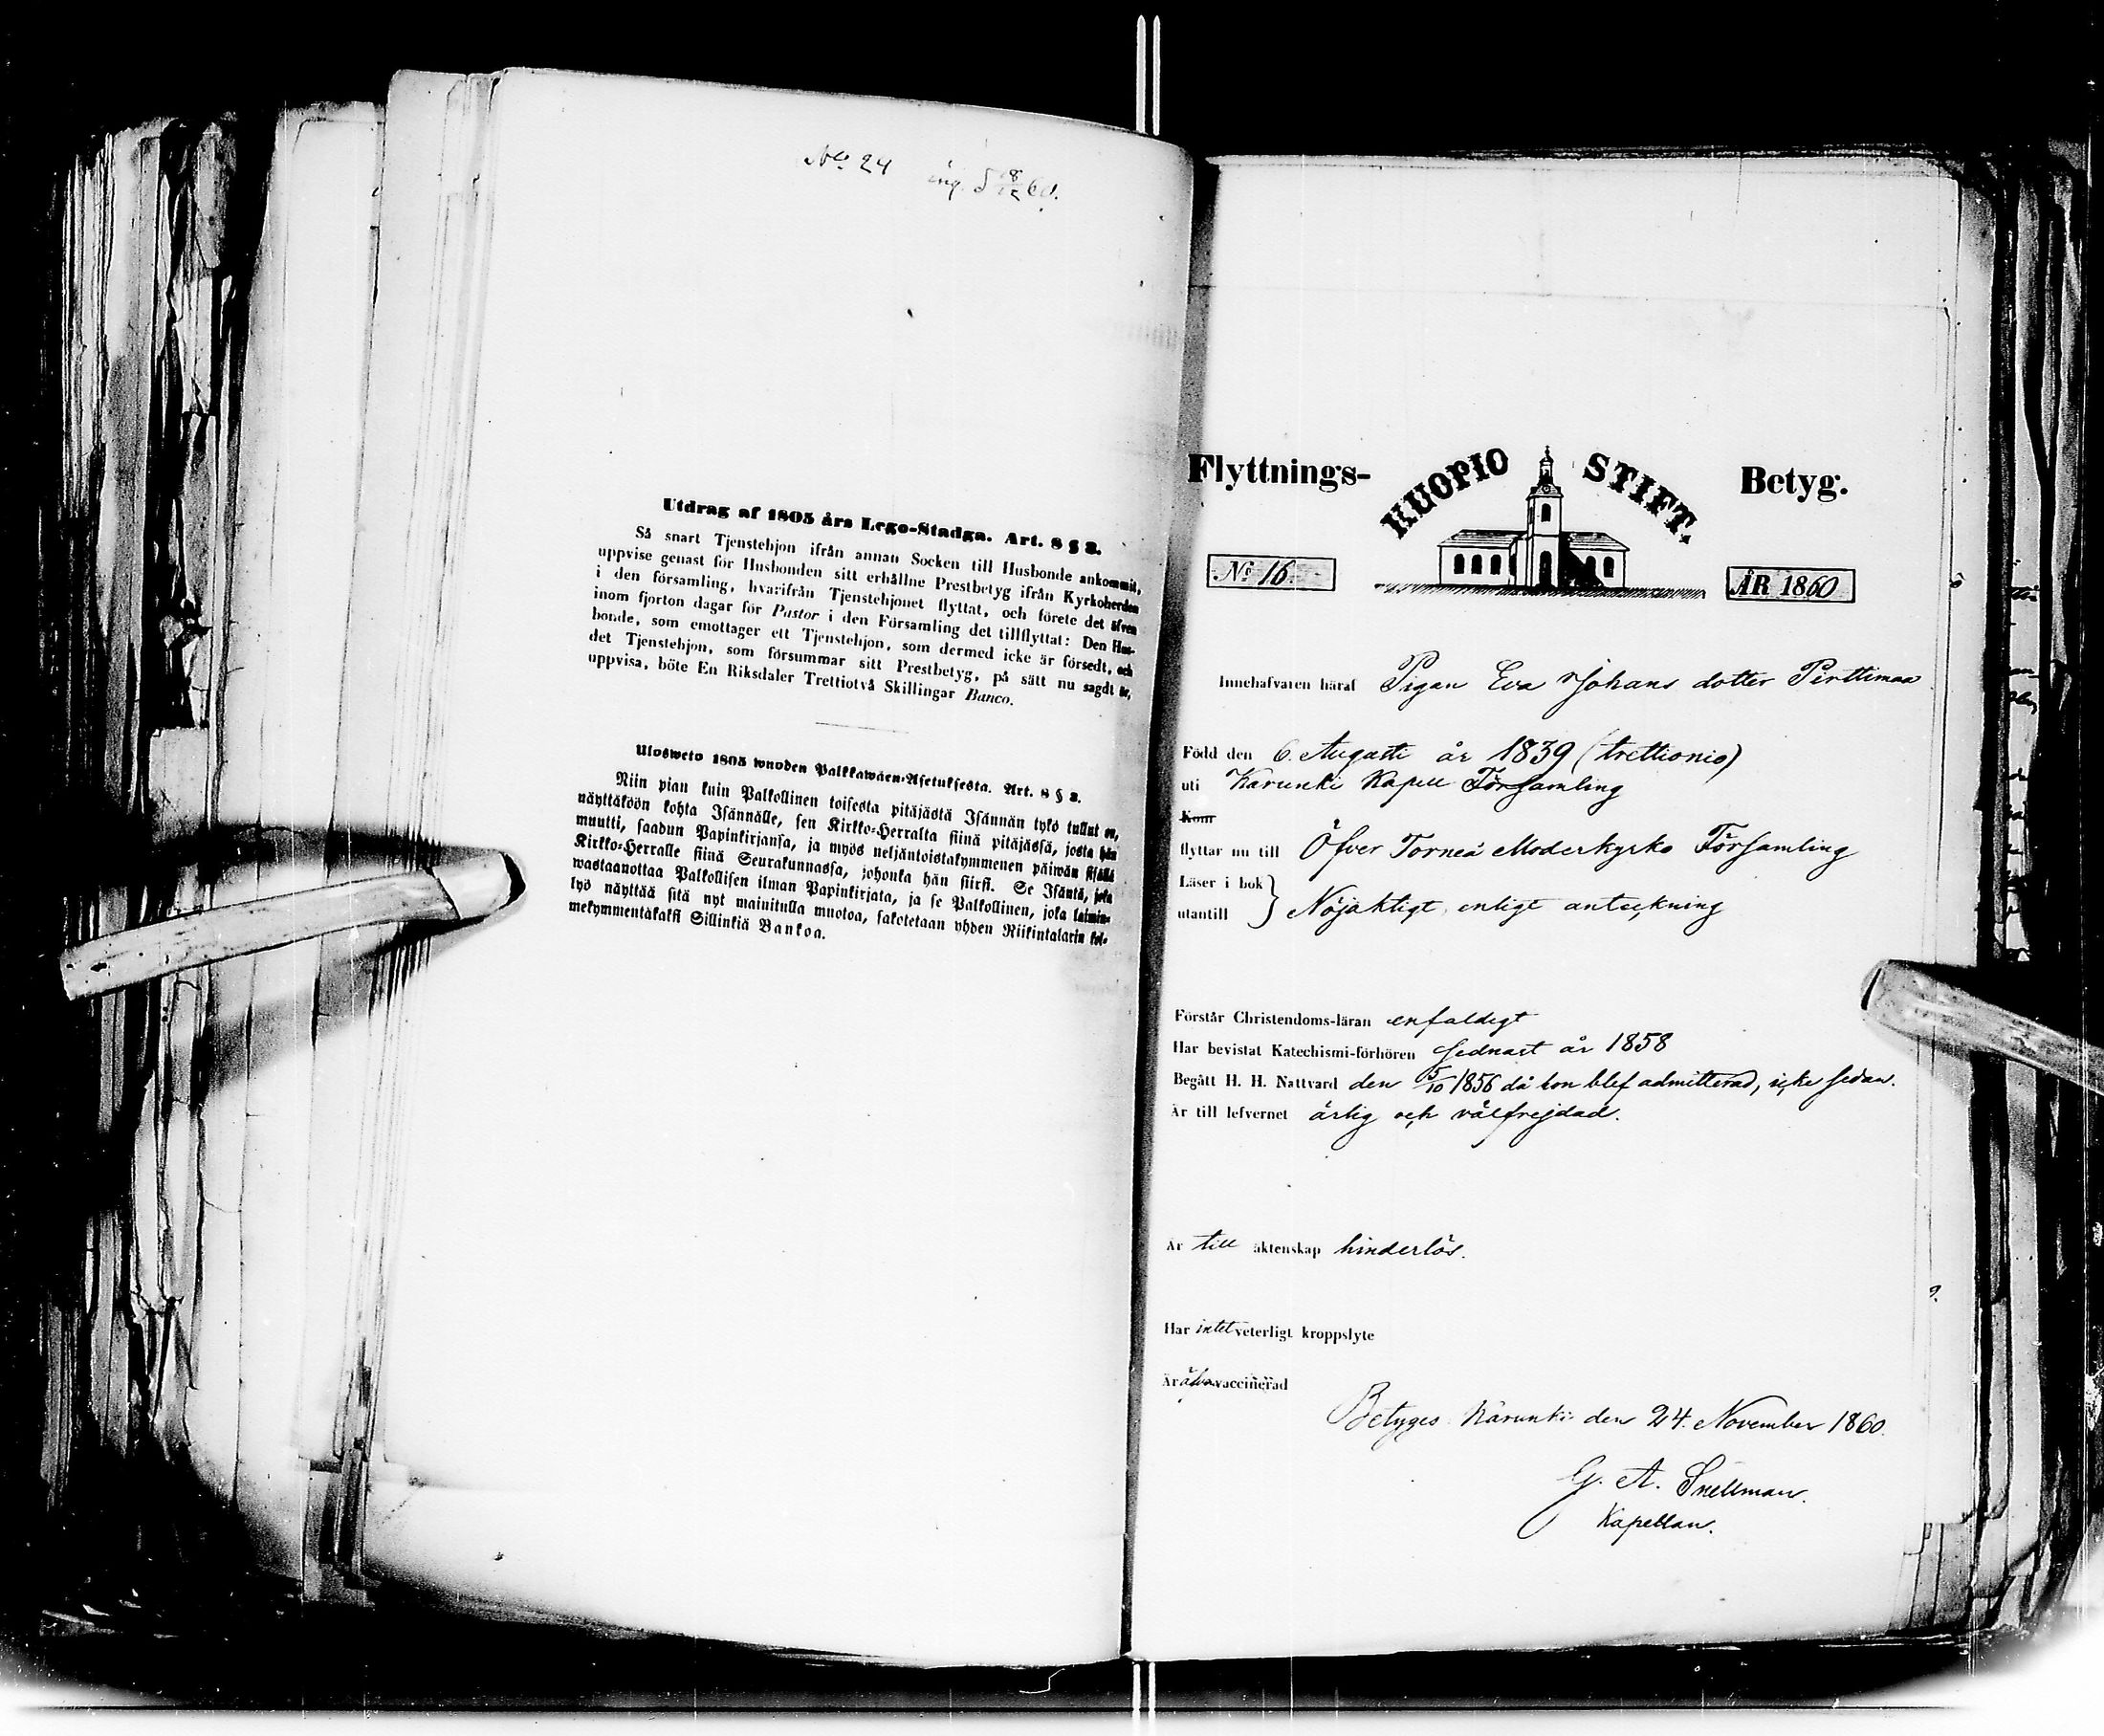 No 24 ing. d 8/12 60.
Utdrag af 1805 års Lego-Stadga. Art. 8 § 3.
Så snart Tjenstehjon ifrån annan Socken till Husbonde ankommit,
uppvise genast för Husbonden sitt erhållne Prestbetyg ifrån Kyrkoherden
i den församling, hvarifrån Tjenstehjonet flyttat, och förete det äfven
inom fjorton dagar för Pastor i den Församling det tillflyttat: Den Hus-
bonde, som emottager ett Tjenstehjon, som dermed icke är försedt, och
det Tjenstehjon, som försummar sitt Prestbetyg, på sätt nu sagdt är,
uppvisa, böte En Riksdaler Trettiotvå Skillingar Banco.
Ulosweto 1805 wuoden Palkkawäen-Asetuksesta. Art. 8 § 3.
Niin pian kuin Palkollinen toisesta pitäjästä Isännän tykö tullut on,
näyttäköön kohta Isännälle, sen Kirkko-Herralta siinä pitäjässä, josta hän
muutti, saadun Papinkirjansa, ja myös neljäntoistakymmenen päiwän sisällä
Kirkko-Herralle siinä Seurakunnassa, johonka hän siirsi. Se Isäntä, joka
wastaanottaa Palkollisen ilman Papinkirjata, ja se Palkollinen, joka laimin-
lyö näyttää sitä nyt mainitulla muotoa, sakotetaan yhden Riikintalarin kol-
mekymmentäkaksi Sillinkiä Bankoa.
Flyttnings- KUOPIO STIFT. Betyg.
No 16. ÅR 1860
Innehafvaren häraf Pigan Eva Johans dotter Perttimaa
Född den 6. Augusti år 1839 (trettionio)
uti Karunki Kapell Församling
Kom
flyttar nu till Öfver Torneå Moderkyrko Församling
Läser i bok }
utantill } Nöjaktigt, enligt anteckning
Förstår Christendoms-läran enfaldigt
Har bevistat Katechismi-förhören sednast år 1858
Begått H. H. Nattvard den 5/10 1856 då hon blef admitterad, icke sedan.
Är till lefvernet ärlig och välfrejdad.
Är till äktenskap hinderlös.
Har intet veterligt kroppslyte
Är äfven vaccinerad
Betyges Karunki den 24. November 1860.
G. A. Snellman.
Kapellan.